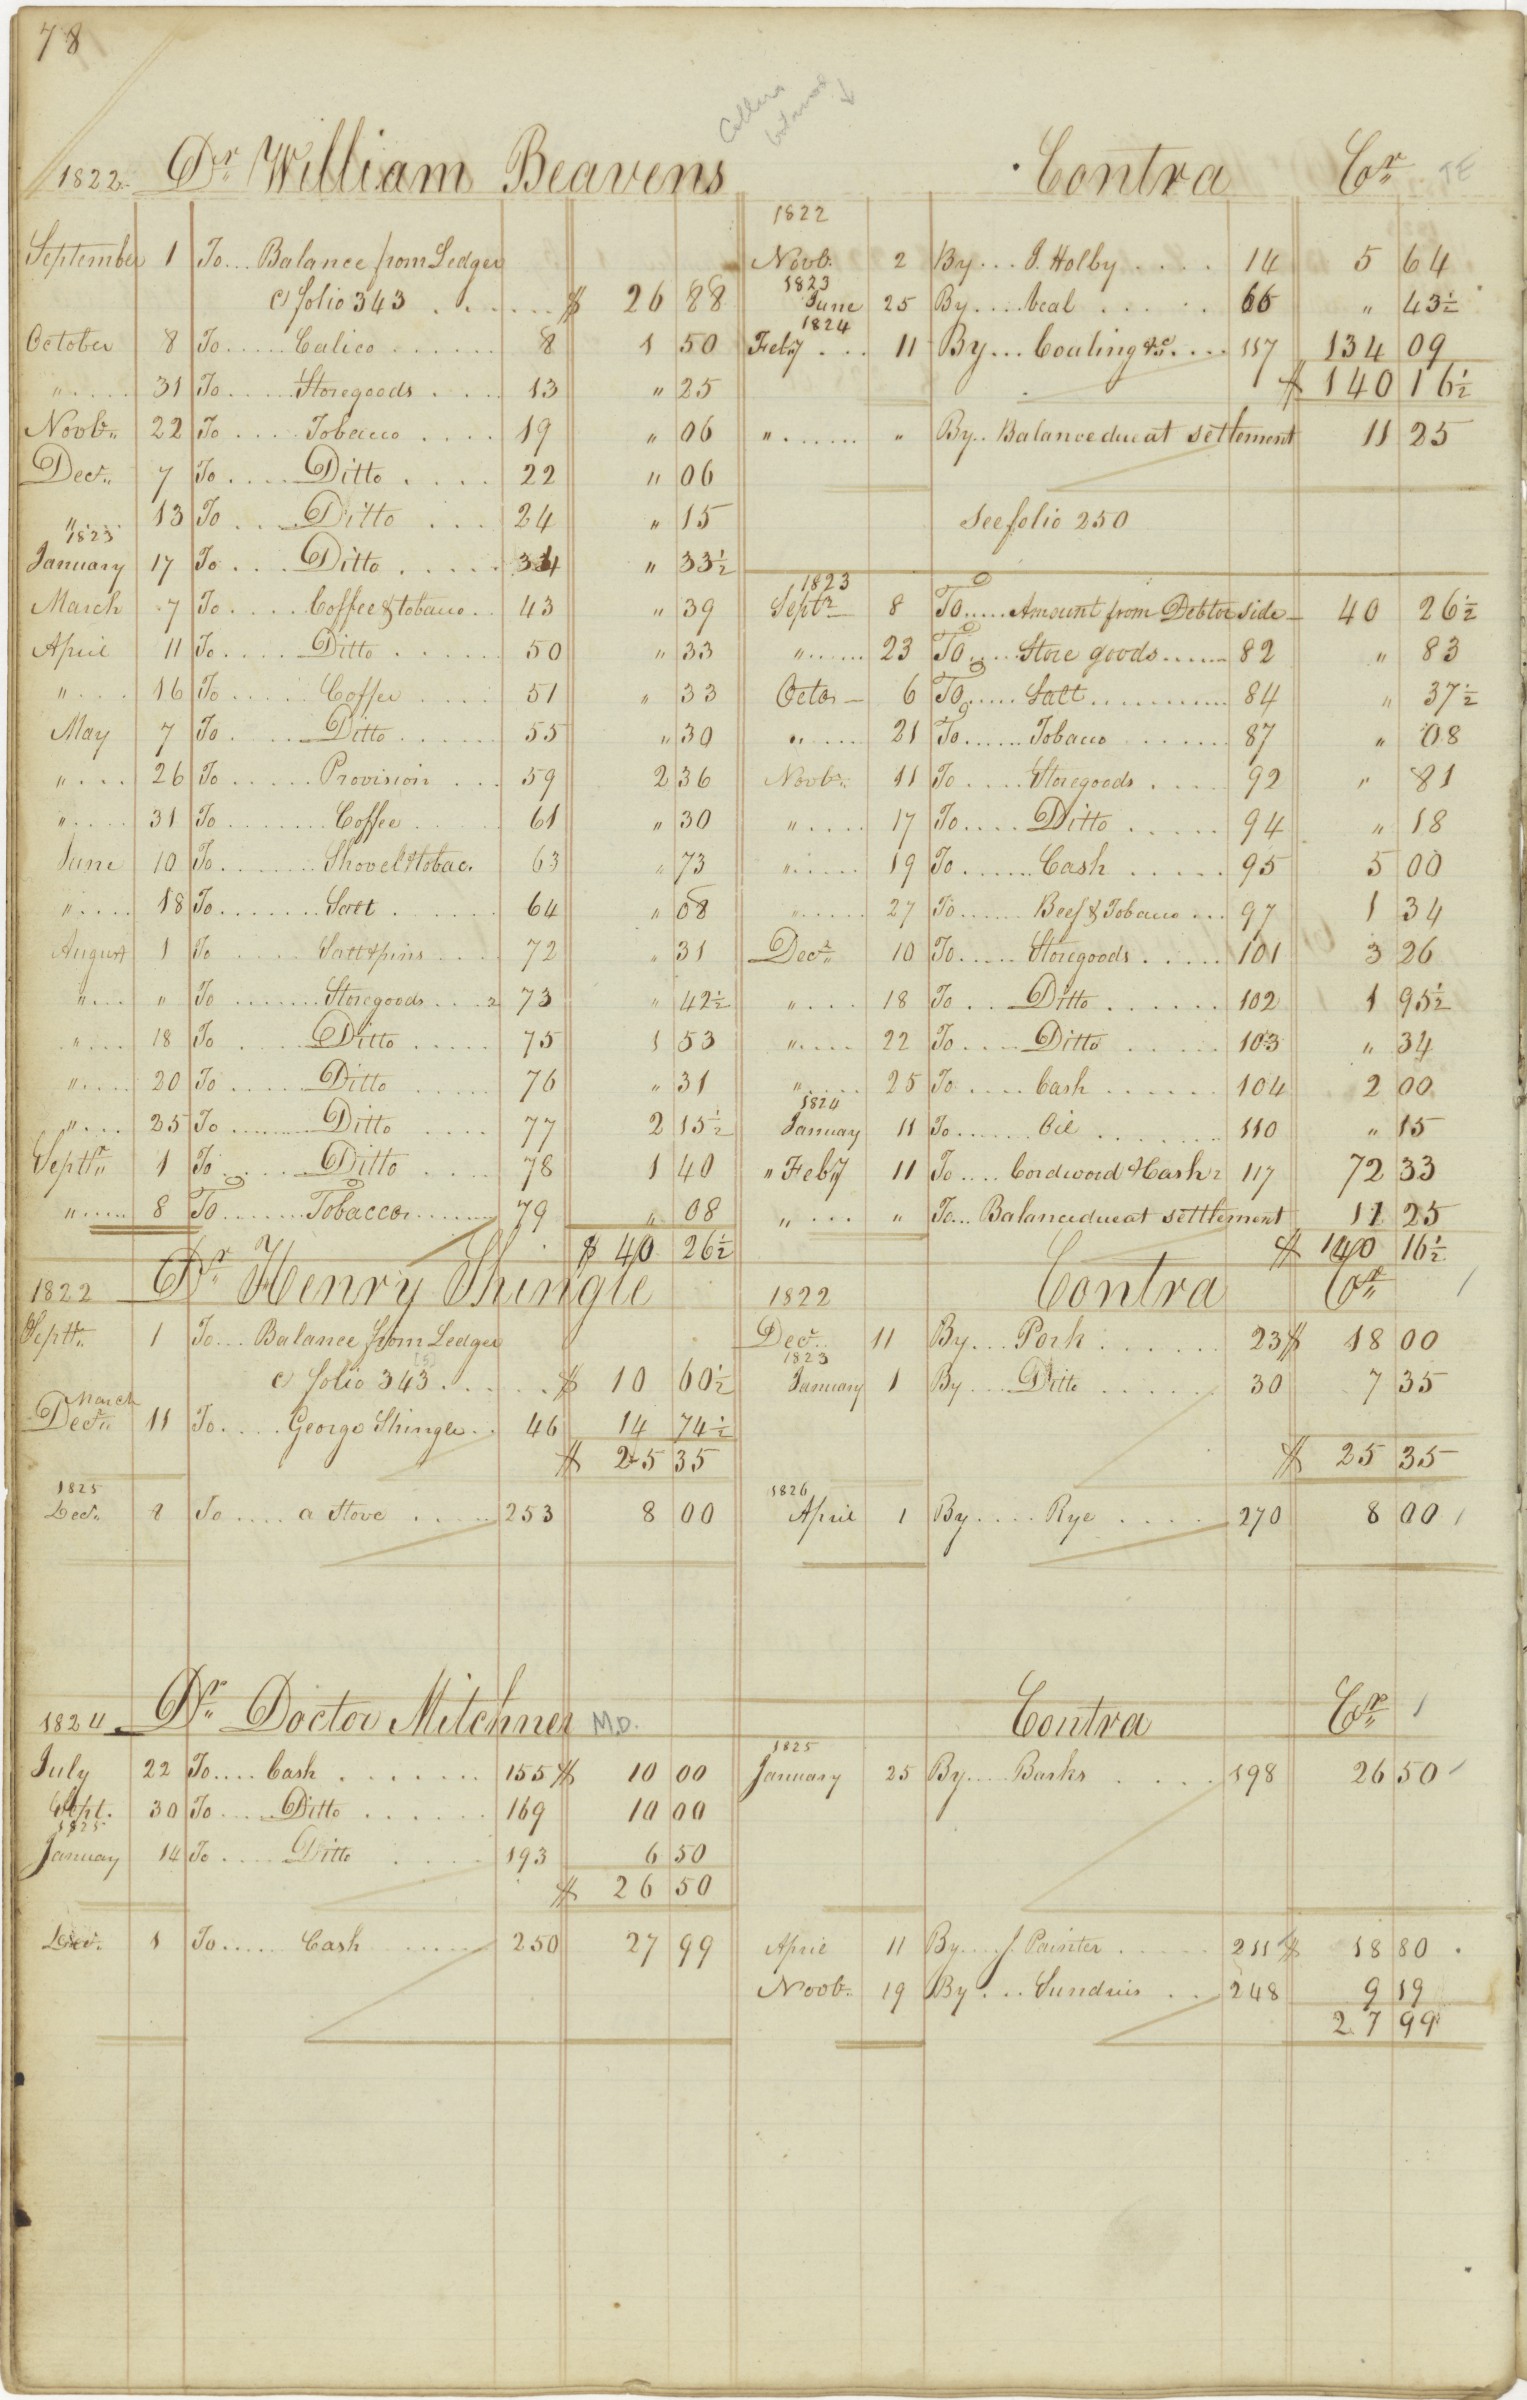 78
1822 Dr William Beavens
September 1 To... Balance from Ledger
C folio 343 ...... $ 26 88
October 8 To..... Calico ...... 8 1 50
" .... 31 To ..... Storegoods .... 13 " 25
Novbr. 22 To .... Tobacco .... 19 " 06
Decr. 7 To .... Ditto .... 22 " 06
" .... 13 To ... Ditto ... 24 " 15
1823
January 17 To ... Ditto ..... 34 " 33½
March 7 To .... Coffee & tobacco .. 43 " 39
April 11 To .... Ditto ...... 50 " 33
" .... 16 To ..... Coffee .... 51 " 33
May 7 To .... Ditto ...... 55 " 30
" .... 26 To ...... Provision ... 59 2 36
" .... 31 To ........ Coffee ..... 61 " 30
June 10 To ....... Shovel & tobac. 63 " 73
" .... 18 To ....... Salt ...... 64 " 08
August 1 To ..... Salt & pins .... 72 " 31
" ... " To ....... Storegoods .... 2 73 " 42½
" .... 18 To .... Ditto ..... 75 1 53
" .... 20 To ..... Ditto ..... 76 " 31
" ... 25 To ....... Ditto .... 77 2 15½
Septbr. 1 To ..... Ditto .... 78 1 40
" ..... 8 To ....... Tobacco ...... 79 " 08
$ 40 26½
Contra Cr
1822
Novb. 2 By ... J. Holby .... 14 5 64
1823
June 25 By .... Veal ..... 66 " 43½
1824
Feby ... 11 By ... Coaling &c .... 117 134 09
$ 140 16½
" ....... " By .. Balance due at settlement 11 25
See folio 250
1823
Septr 8 To ..... Amount from Debtor side 40 26½
" ...... 23 To ..... Store goods ...... 82 " 83
Octor 6 To ..... Salt ............ 84 " 37½
" ...... 21 To ...... Tobacco ....... 87 " 08
Novbr. 11 To ..... Storegoods .... 92 " 81
" ..... 17 To .... Ditto ..... 94 " 18
" ..... 19 To ...... Cash ..... 95 5 00
" ..... 27 To ...... Beef & Tobacco ... 97 1 34
Decr. 10 To ..... Storegoods ..... 101 3 26
" .... 18 To .. Ditto ...... 102 1 95½
" .... 22 To ... Ditto ..... 103 " 34
" ..... 25 To .... Cash ...... 104 2 00
1824
January 11 To ...... Oil ....... 110 " 15
" Feby 11 To .... Cordwood & Cash 2 117 72 33
" ... " To ... Balance due at settlement 11 25
$ 140 16½
1822 Dr Henry Shingle
Septbr. 1 To ... Balance from Ledger
C folio 343 ..... $ 10 60½
March
Decr. 11 To .... George Shingle .. 46 14 74½
$ 25 35
1825
Decr. 8 To .... a Stove ..... 253 8 00
Contra Cr
1822
Decr. 11 By ... Pork ...... 23 $ 18 00
1823
January 1 By ... Ditto ..... 30 7 35
$ 25 35
1826
April 1 By .... Rye .... 270 8 00
1824 Dr Doctor Mitchner M.D.
July 22 To .... Cash ....... 155 $ 10 00
Sept. 30 To .... Ditto ...... 169 10 00
1825
January 14 To .... Ditto .... 193 6 50
$ 26 50
Decr. 1 To ..... Cash ...... 250 27 99
Contra Cr
1825
January 25 By .... Barks .... 198 26 50
April 11 By .... J. Painter ..... 211 $ 18 80
Novb. 19 By ... Sundries .. 248 9 19
27 99